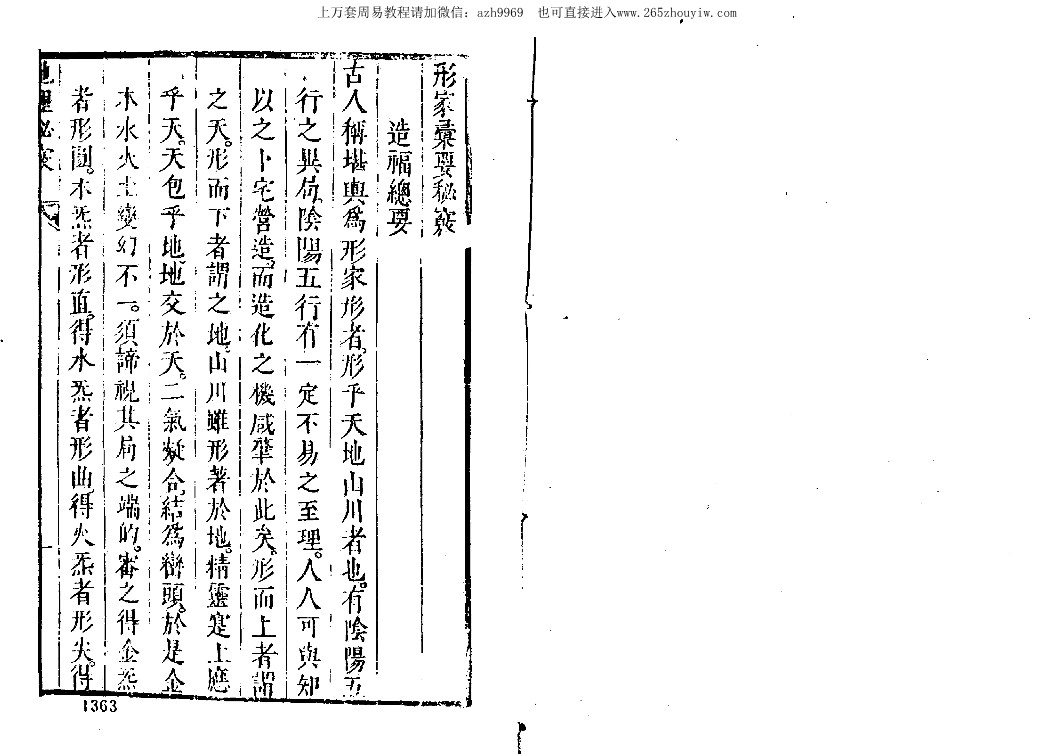 上万套周易教程请加微信：azh9969 也可直接进入www.265zhouyiw.com
形家彙要秘竅
造福總要
古人稱堪輿爲形家形者。形乎天地山川者也。有陰陽五
行之異局。陰陽五行有一定不易之至理。人人可與知
以之卜宅營造。而造化之機咸肇於此矣。形而上者謂
之天。形而下者謂之地。山川雖形著於地。精靈寔上應
乎天。天包乎地。地交於天。二氣凝合。結爲巒頭。於是金
木水火土變幻不一。須諦視其局之端的。審之得金炁
者形圓。木炁者形直。得水炁者形曲。得火炁者形尖。得
地理秘竅
一
1363